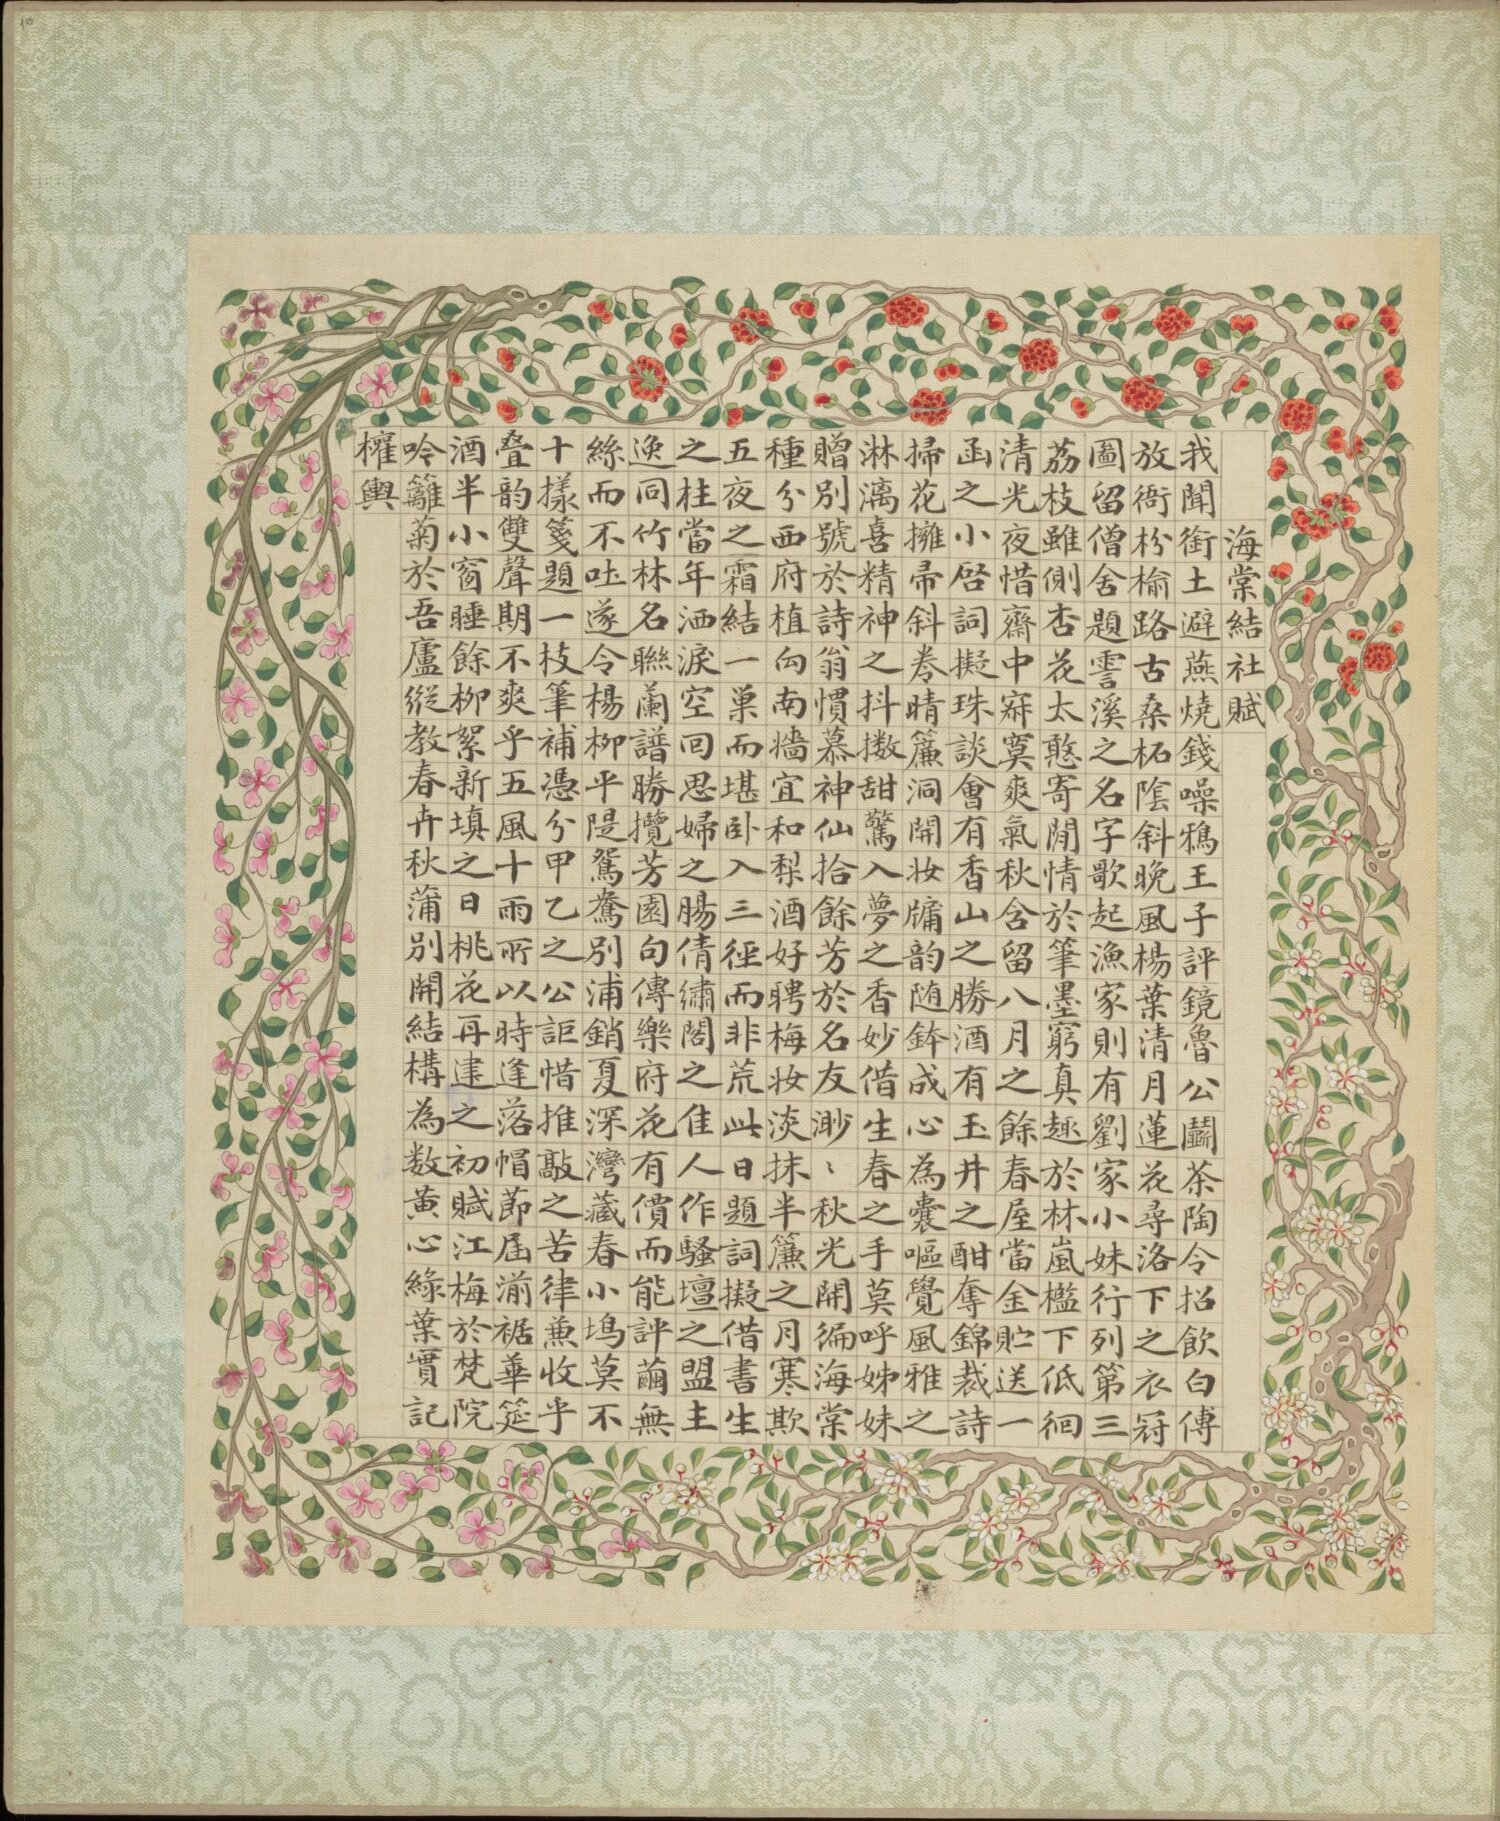 海棠結社賦
我聞銜土避燕燒錢噪鴉王子評鏡魯公鬭茶陶令招飲白傅
放衙枌榆路古桑柘陰斜晚風楊葉清月蓮花尋洛下之衣冠
圖留僧舍題雪溪之名字歌起漁家則有劉家小妹行列第三
荔枝雖側杏花太憨寄閒情於筆墨窮真趣於林嵐檻下低徊
清光夜惜齋中寂寞爽氣秋含留八月之餘春屋當金貯送一
函之小啓詞擬珠談會有香山之勝酒有玉井之酣奪錦裁詩
掃花擁帚斜卷晴簾洞開妝牖韵随鉢成心為囊嘔覺風雅之
淋漓喜精神之抖擻甜驚入夢之香妙借生春之手莫呼姊妹
贈別號於詩翁慣慕神仙拾餘芳於名友渺〻秋光開徧海棠
種分西府植向南墻宜和梨酒好聘梅妝淡抹半簾之月寒欺
五夜之霜結一巢而堪卧入三徑而非荒此日題詞擬借書生
之柱當年洒淚空回思婦之腸倩繡閣之佳人作騷壇之盟主
逸同竹林名聯蘭譜勝攬芳園句傳樂府花有價而能評繭無
絲而不吐遂令楊柳平隄鴛鴦別浦銷夏深灣藏春小塢莫不
十樣箋題一枝筆補憑分甲乙之公詎惜推敲之苦律兼收乎
叠韵雙聲期不爽乎五風十雨所以時逢落帽節屆湔裾華筵
酒半小窗睡餘柳絮新填之日桃花再建之初賦江梅於梵院
吟籬菊於吾廬縱教春卉秋蒲別開結構為数黃心綠葉實記
權輿